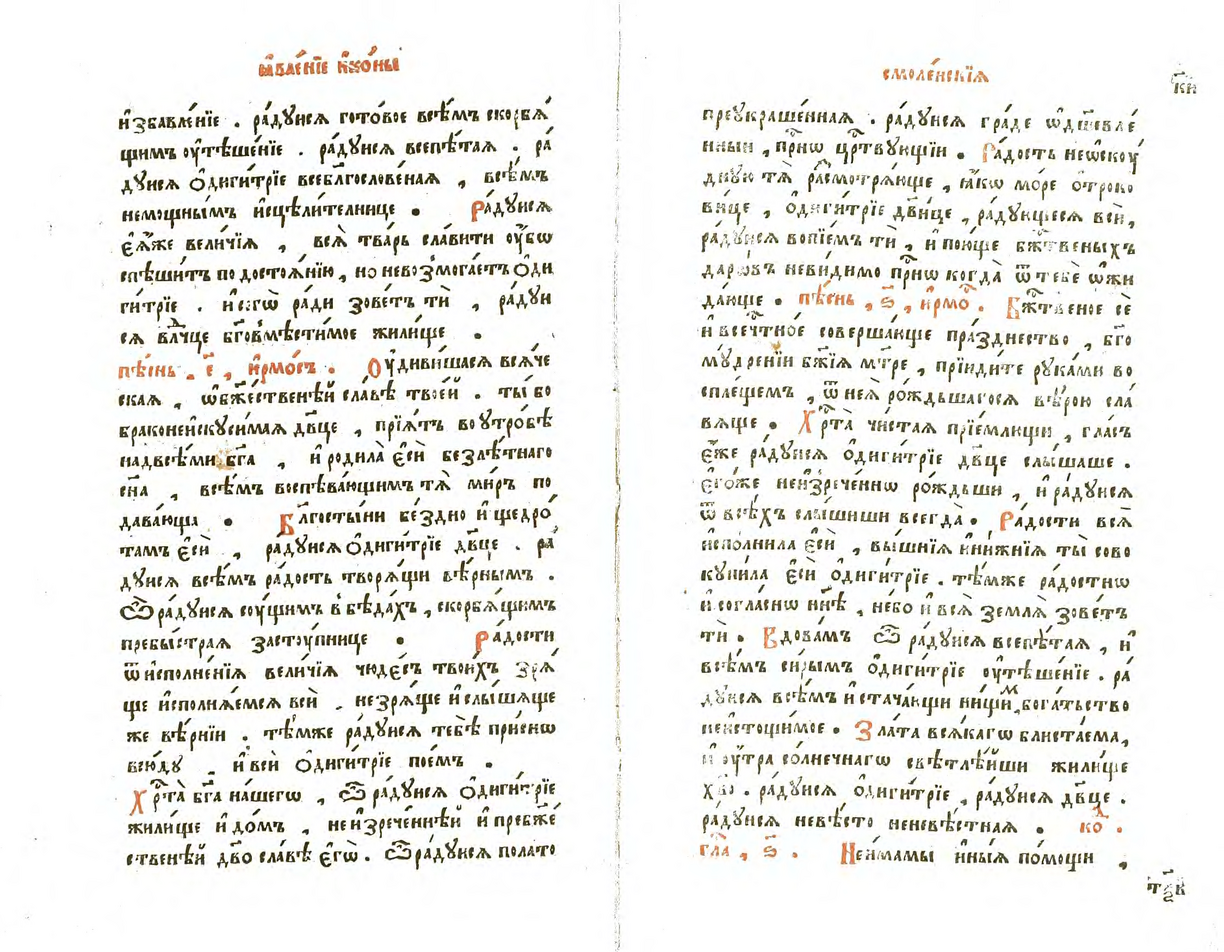 ꙗ҆вле́нїе і҆ко́ны
и҆збавле́нїе . ра́дꙋисѧ гото́вое всѣ́мъ скорбѧ́
щимъ ᲂу҆тѣше́нїе . ра́дꙋисѧ всепѣ́таѧ . ра́
дꙋисѧ ѻ҆диги́трїе всебл҃гослове́наѧ , всѣ́мъ
немощны́мъ и҆сцѣли́телнице . Ра́дꙋисѧ
є҆ѧ́же вели́чїѧ , всѧ̀ тва́рь сла́вити ᲂу҆́бѡ
спѣши́тъ по достоѧ́нїю , но невозмога́етъ ѻ҆ди
ги́трїе . и҆ сегѡ̀ ра́ди зове́тъ тѝ , ра́дꙋи
сѧ влⷣчце бг҃овмѣсти́мое жили́ще .
пѣ́снь . є҃ , і҆рмо́съ . Оу҆диви́шасѧ всѧ́че
скаѧ , ѡ҆ бж҃е́ственѣй сла́вѣ твое́й . ты́ бо
браконеискꙋси́маѧ дв҃це , прїѧ́тъ во ᲂутро́бѣ
надъ всѣ́ми бг҃а , и҆ родила̀ є҆сѝ безлѣ́тнаго
сн҃а , всѣ́мъ воспѣва́ющимъ тѧ̀ ми́ръ по
дава́юща . Бл҃госты́ни бе́здно и҆ щедро́
тамъ є҆сѝ , ра́дꙋисѧ ѻ҆диги́трїе дв҃це . ра́
дꙋисѧ всѣ́мъ ра́дость творѧ́щи вѣ́рнымъ .
Ѽ ра́дꙋисѧ сꙋ́щимъ в бѣда́хъ , скорбѧ́щимъ
пребы́страѧ застꙋ́пнице . Ра́дости
ѿ и҆сполне́нїѧ вели́чїѧ чюде́съ твои́хъ зрѧ́
ще и҆сполнѧ́емсѧ всѝ . не зрѧ́ще и҆ слы́шаще
же вѣ́рнїи . тѣ́мже ра́дꙋисѧ тебѣ̀ при́снѡ
всю́дꙋ , и҆ всѝ ѻ҆диги́трїе пое́мъ .
Хрⷭ҇та̀ бг҃а на́шегѡ , ѽ ра́дꙋисѧ ѻ҆диги́трїе
жили́ще и҆ до́мъ , неи҆зрече́ннѣй и҆ пребж҃е́
ственѣй дв҃о сла́вѣ є҆гѡ̀ . Ѽ ра́дꙋисѧ пола́то
смоле́нскїѧ
к҃и
преукраше́ннаѧ . ра́дꙋисѧ гра́де ѡ҆дш҃евле́
нныи , прⷭ҇нѡ црⷭ҇твꙋющїи . Ра́дость неѡскꙋ́
днꙋю тѧ̀ расмотрѧ́юще , ꙗ҆́кѡ мо́ре ѻ҆троко
ви́це , ѻ҆диги́трїе дв҃ице , ра́дꙋющесѧ всѝ ,
ра́дꙋисѧ вопїе́мъ тѝ , и҆ пою́ще бжⷭ҇твеныхъ
даро́въ неви́димо прⷭ҇нѡ когда̀ ѿ тебѐ ѡ҆жи
да́юще . пѣ́снь , ѕ҃ , і҆рмоⷭ҇ . Бжⷭ҇твеное сѐ
и҆ всечⷭ҇тно́е соверша́юще пра́зднество , бг҃о
мꙋ́дренїи бж҃їѧ мт҃ре , прїиди́те рꙋка́ми во
спле́щемъ , ѿ неѧ̀ ро́ждьшагосѧ вѣ́рою сла́
вѧще . Хрⷭ҇та̀ чи́стаѧ прїе́млющи , гла́съ
є҆́же ра́дꙋисѧ ѻ҆диги́трїе дв҃це слы́шаше .
є҆го́же неи҆зрече́ннѡ ро́ждьши , и҆ ра́дꙋисѧ
ѿ всѣ́хъ слы́шиши всегда̀ . Ра́дости всѧ̀
и҆спо́лнила є҆сѝ , вы́шнїѧ и҆ ни́жнїѧ ты̀ сово
кꙋпи́ла є҆сѝ ѻ҆диги́трїе . тѣ́мже ра́достнѡ
и҆ согла́снѡ нн҃ѣ , не́бо и҆ всѧ̀ землѧ̀ зове́тъ
тѝ . Вдова́мъ ѽ ра́дꙋисѧ всепѣ́таѧ , и҆
всѣ́мъ си́рымъ ѻ҆диги́трїе ᲂу҆тѣше́нїе . ра́
дꙋисѧ всѣ́мъ и҆стача́ющи ни́щиⷨ , бога́тьство
неистощи́мое . Зла́та всѧ́кагѡ блиста́ема ,
и҆ ᲂу҆́тра со́лнечнагѡ свѣтлѣ́йши жили́ще
хв҃о . ра́дꙋисѧ ѻ҆диги́трїе , ра́дꙋисѧ дв҃це .
ра́дꙋисѧ невѣ́сто неневѣ́стнаѧ . коⷣ .
гла́ , ѕ҃ . Не и҆́мамы и҆ны́ѧ по́мощи ,